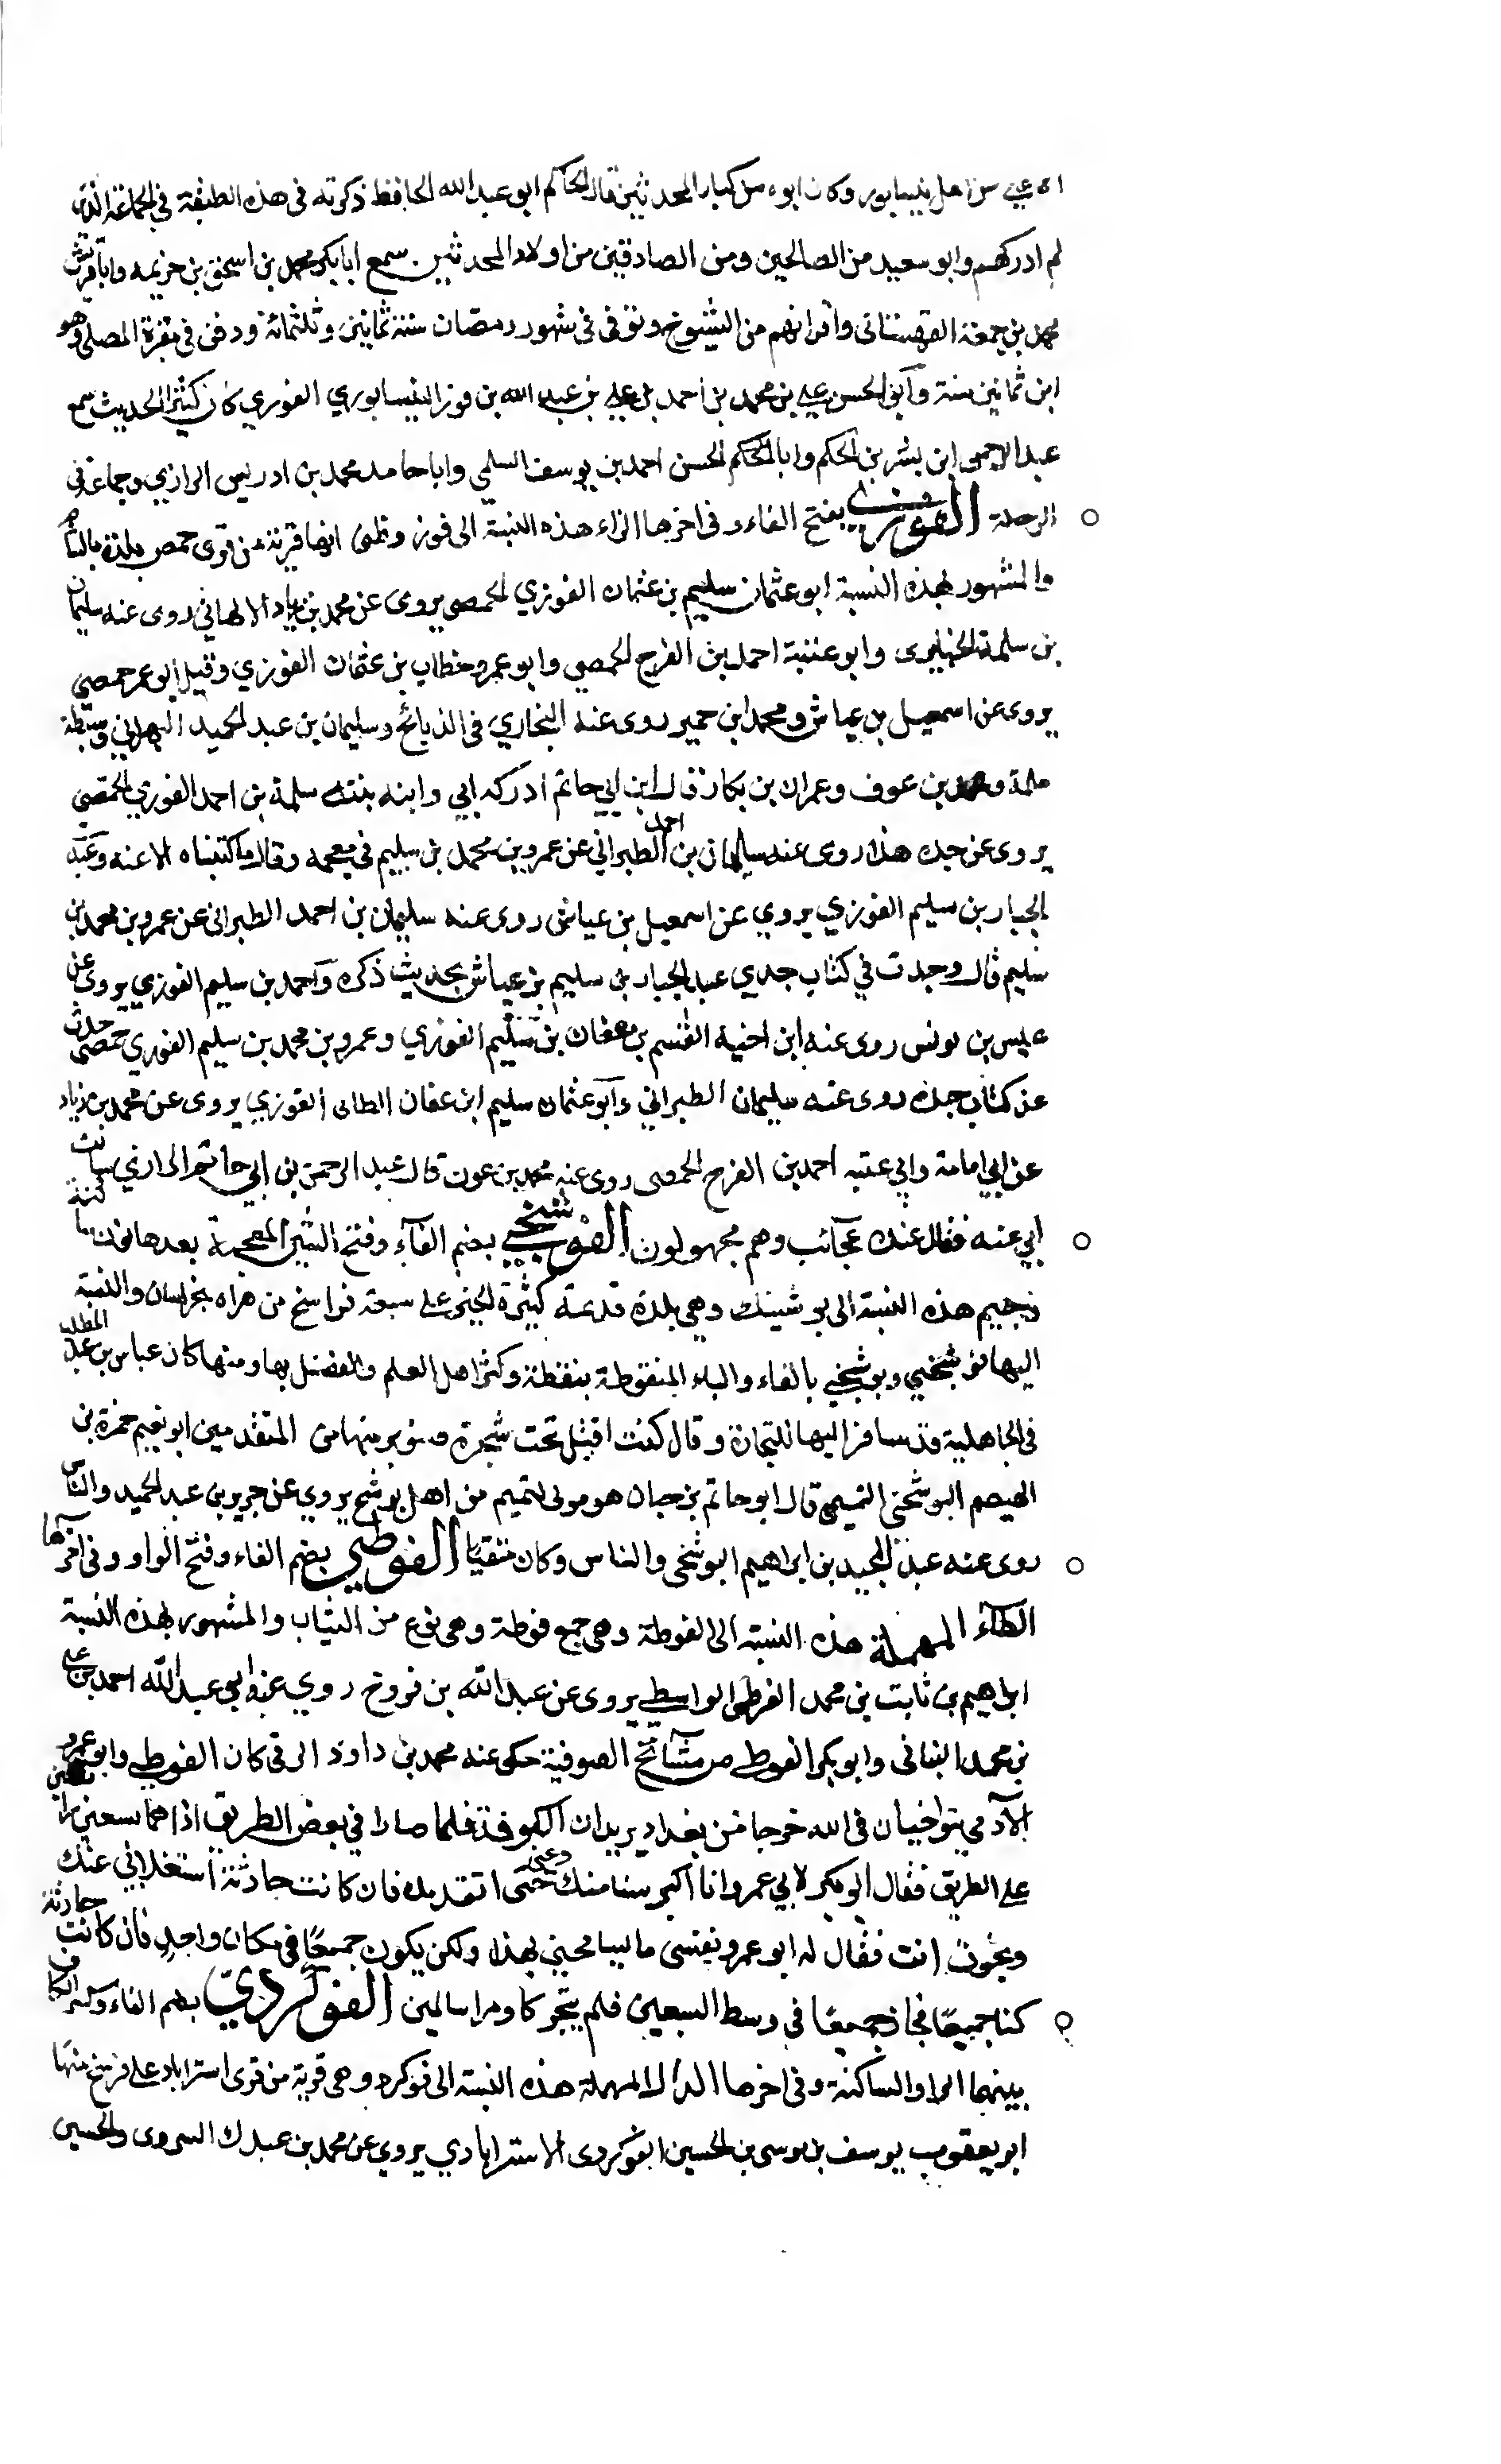 من اهل نيسابور وكان ابوه من كبار المحدثين قال الحاكم ابو عبد الله الحافظ ذكرته فى هذه الطبقة فى الجماعة الذين
لم ادركهم وابو سعيد من الصالحين ومن الصادقين من اولاد المحدثين سمع ابا بكر محمد بن اسحق بن خزيمه وابا قريش
محمد بن جمعة القهستانى واقرانهم من الشيوخ وتوفى فى شهور رمضان سنة ثمانين وثلثمائة ودفن فى مقبرة المصلى وهو
ابن ثمانين سنة وابو الحسن على بن محمد بن احمد بن على بن عبد الله بن فوز النيسابوري الفوري كان كثير الحديث سمع
عبد الرحمن ابن بشر بن الحكم وابا الحسن احمد بن يوسف السلمي وابا حامد محمد بن ادريس الرازي وجماعة فى
الرحلة الفوزي بفتح الفاء وفى اخرها الزاء هذه النسبة الى فوز وظنى انها قرية من قرى حمص بلدة بالشام
والمشهور بهذه النسبة ابو عثمان سليم بن عثمان الفوزي الحمصي يروى عن محمد بن زياد الالهاني روى عنه سليمان
بن سلمة الخبايرى وابو عتبة احمد بن الفرج الحمصي وابو عمرو خطاب بن عثمان الفوزي وقيل ابو عمر حمصي
يروى عن اسمعيل بن عياش ومحمد ابن حمير روى عنه البخاري فى الذبائح وسليمان بن عبد الحميد البهراني
ومحمد بن عوف وعمران بن بكار قال ابن ابي حاتم ادركه ابي وابنه بنته سلمة بن احمد الفوزي الحمصي
يروى عن جده هذا روى عنه سليمان بن احمد الطبراني عن عمرو بن محمد بن سليم في معجمه وقال ما كتبناه الا عنه وعبد
الجبار بن سليم الفوزي يروي عن اسمعيل بن عياش روى عنه سليمان بن احمد الطبرانى عن عمرو بن محمد بن
سليم قال وجدت في كتاب جدي عبد الجبار بن سليم بن عياش بحديث ذكره واحمد بن سليم الفوزي يروى عن
عيسى بن يونس روى عنه ابن اخيه القسم بن عفان بن سليم الفوزي وعمرو بن محمد بن سليم الفوزي حمصي حدث
عن كتاب جده روى عنه سليمان الطبراني وابو عثمان سليم ابن عفان الطائى الفوزي يروى عن محمد بن زياد
عن ابي امامة وابي عتبه احمد بن الفرج الحمصى روى عنه محمد بن عون قال عبد الرحمن بن ابي حاتم الرازي سالت
ابي عنه فقال عنده عجائب وهم مجهولون الفوشنجي بضم الفآء وفتح الشين المعجمة بعدها نون ساكنة
وجيم هذه النسبة الى بوشينك وهي بلدة قديمة كثيرة الخير على سبعة فراسخ من هراه بخراسان والنسبة
اليها فوشنجي وبوشنجي بالفاء والباء المنقوطة بنقطة وكثر اهل العلم والفضل بها ومنها كان عباس بن عبد المطلب
فى الجاهلية قد سافر اليها للتجارة وقال كنت اقيل تحت شجرة صنوبر منها من المتقدمين ابو نعيم حمزة بن
الهيصم البوشنجى التميمي قال ابو حاتم بن حبان هو مولى لتميم من اهل بوشنج يروي عن جرير بن عبد الحميد والناس
روى عنه عبد المجيد بن ابراهيم البوشنجى والناس وكان متقنا الفوطي بضم الفاء وفتح الواو وفى اخرها
الطآء المهملة هذه النسبة الى الفوطة وهى جمع فوطة وهى نوع من الثياب والمشهور بهذه النسبة
ابراهيم بن ثابت بن محمد الفوطى الواسطي يروى عن عبد الله بن فروخ روي عنه ابي عبد الله احمد بن على
بن محمد وابو بكر الفوطي من مشائخ الصوفية حكى عنه محمد بن داود الرقى كان الفوطي وابو عمرو
الآدمي يتواخيان فى الله خرجا من بغداد يريدان الكوفة فلما صارا في بعض الطريق اذا هما بسبعين
على الطريق فقال ابو بكر لابي عمرو انا اكبر سنا منك دعنى حتى اتقدمك فان كانت حادثة اشتغلاني عنك
وتجوز انت فقال له ابو عمرو نفسى ما تسامحني بهذا ولكن يكون جميعا في مكان واحد فان كانت حادثة
كنا جميعا فجازا جميعا في وسط السبعين فلم يتحركا ومرا سالمين الفوكردي بضم الفاء وكسر الكاف
بينهما الواو الساكنة وفى اخرها الدال المهملة هذه النسبة الى فوكرد وهى قرية من قرى استراباد على فرسخ منها
ابو يعقوب يوسف بن موسى بن الحسين الفوكردى الاستراباذي يروي عن محمد بن عبدك السروى والحسين